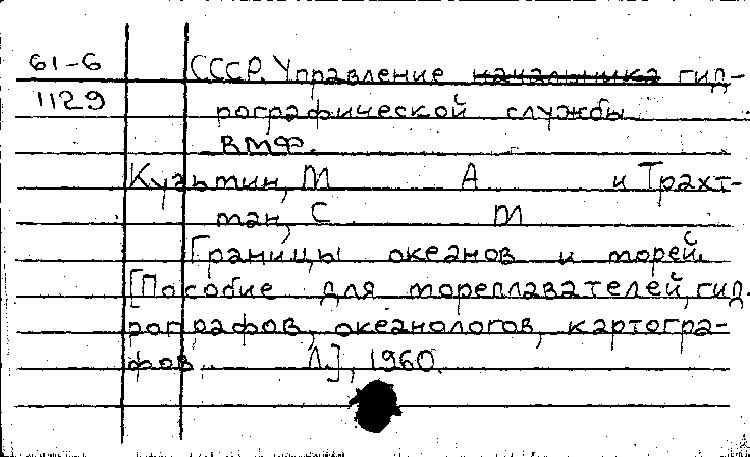 61-6 СССР. Управление начальника гид-
1129 рографической службы
ВМФ.
Кузьмин, М А. и Трахт-
ман, С М
Границы океанов и морей.
[Пособие для мореплавателей, гид.
рографов, океанологов, картогра-
фов. Л.], 1960.